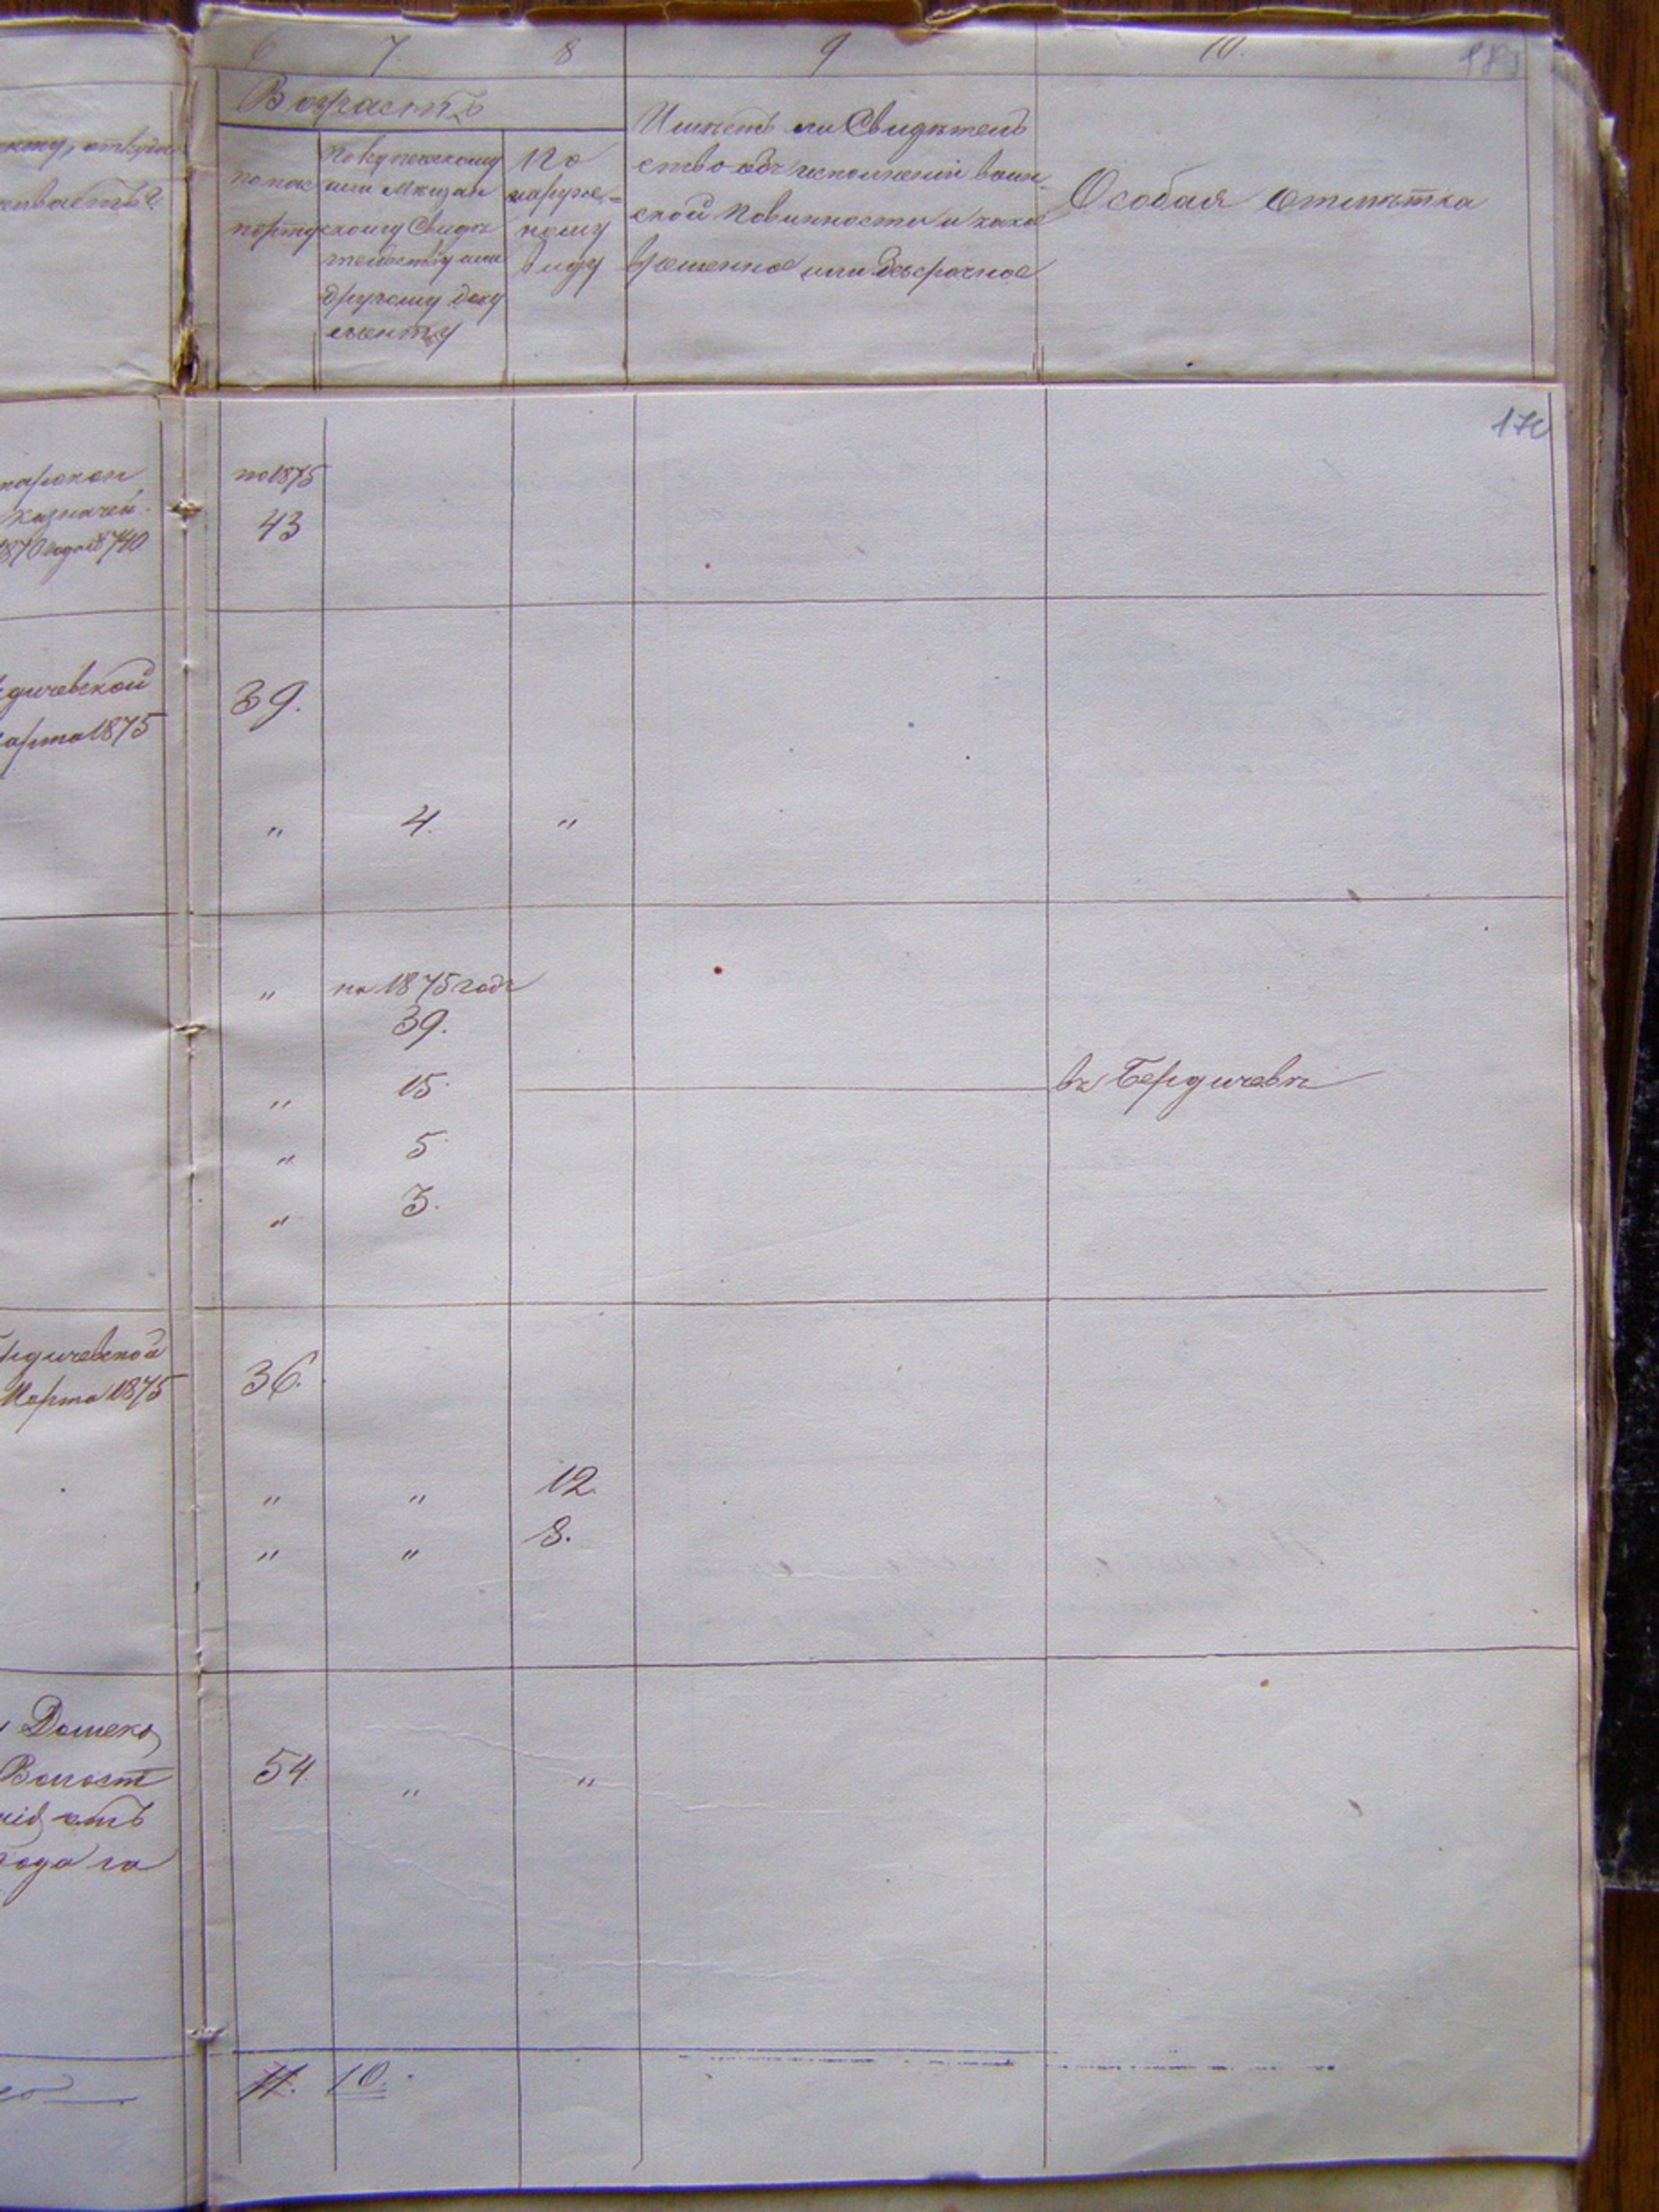 6 7. 8 9 10.
Возрастъ
по пас
порту
По купеческому
или Мѣщан
скому Свидѣ
тельству или
другому доку
менту
По
наруж=
ному
виду
Имѣетъ ли Свидѣтель
ство объ исполненіи воин-
ской Повинности и какое
временное или безсрочное
Особая Отмѣтка
170
казначей-
1870 года № 740
по 1875
43
дичевской
арта 1875
39.
" 4. "
" на 1875 годъ
39.
" 15. въ Бердичевѣ
" 5.
" 3.
дичевской
Марта 1875
36.
" " 12.
" " 8.
Волост
отъ
года за
54 " "
11. 10.